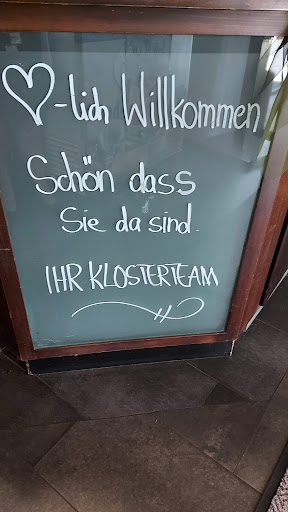 ♡-lich Willkommen
Schön dass
Sie da sind.
IHR KLOSTERTEAM